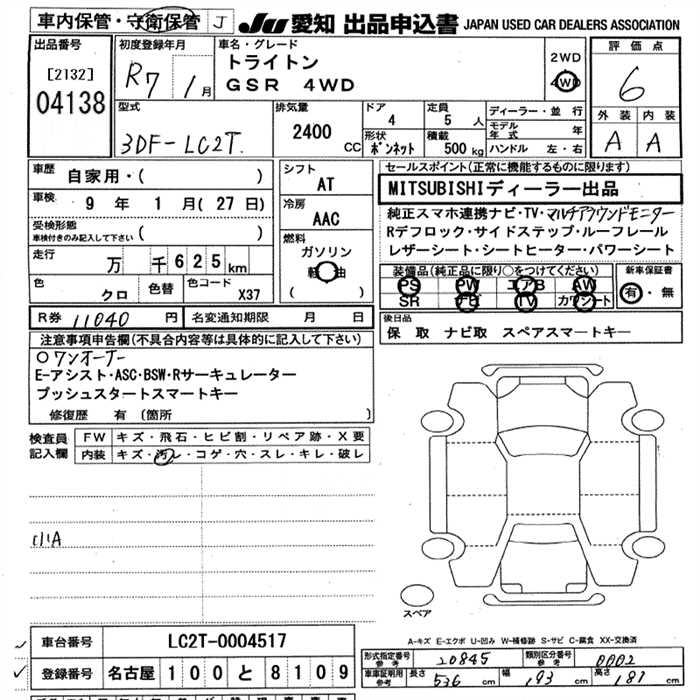 車内保管・守衛保管 J
JU 愛知 出品申込書 JAPAN USED CAR DEALERS ASSOCIATION
出品番号
[2132]
04138
初度登録年月
R7 / 1月
車名・グレード
トライトン
GSR 4WD
2WD
4WD
評価点
6
外装 内装
A A
型式
3DF-LC2T
排気量
2400 CC
ドア
4
定員
5 人
形状
ボンネット
積載
500 kg
ディーラー・並行
モデル年式 年
ハンドル 左・右
車歴 自家用・( )
車検 9 年 1 月 (27 日)
受検形態
車検付きのみ記入して下さい ( )
走行 万 千 625 km
色 クロ 色替 色コード X37
シフト
AT
冷房
AAC
燃料
ガソリン
軽油
( )
セールスポイント(正常に機能するものに限ります)
MITSUBISHIディーラー出品
純正スマホ連携ナビ・TV・マルチアラウンドモニター
Rデフロック・サイドステップ・ルーフレール
レザーシート・シートヒーター・パワーシート
装備品(純正品に限り○をつけてください)
PS PW エアB AW
SR ナビ TV カワシート
新車保証書
有・無
R券 11040 円 名変通知期限 月 日
後日品
保 取 ナビ取 スペアスマートキー
注意事項申告欄(不具合内容等は具体的に記入して下さい)
○ワンオーナー
E-アシスト・ASC・BSW・Rサーキュレーター
プッシュスタートスマートキー
修復歴 有 (箇所 )
検査員記入欄
FW キズ・飛石・ヒビ割・リペア跡・X要
内装 キズ・汚レ・コゲ・穴・スレ・キレ・破レ
小A
スペア
A-キズ E-エクボ U-凹み W-補修跡 S-サビ C-腐食 XX-交換済
車台番号 LC2T-0004517
登録番号 名古屋 100 と 8109
形式指定番号 参考 20845 類別区分番号 参考 0002
車庫証明用 参考 長さ 536 cm 幅 193 cm 高さ 181 cm